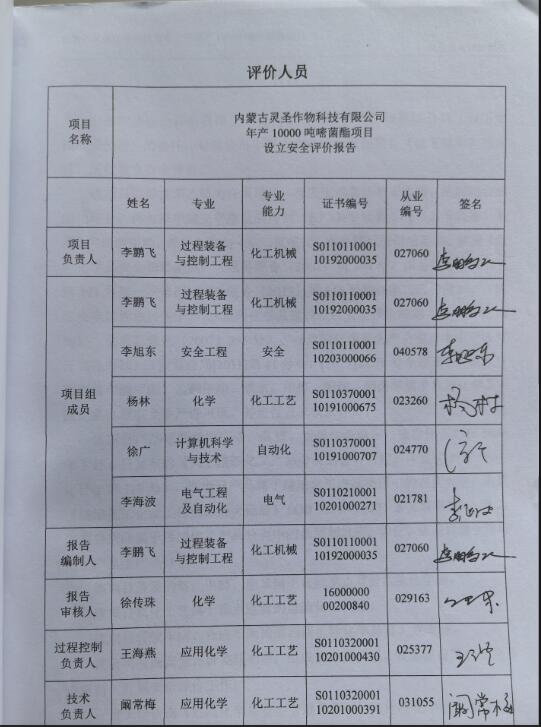 评价人员
项目
名称
内蒙古灵圣作物科技有限公司
年产 10000 吨嘧菌酯项目
设立安全评价报告
姓名
专业
专业
能力
证书编号
从业
编号
签名
项目
负责人
李鹏飞
过程装备
与控制工程
化工机械
S0110110001
10192000035
027060
李鹏飞
项目组
成员
李鹏飞
过程装备
与控制工程
化工机械
S0110110001
10192000035
027060
李鹏飞
李旭东
安全工程
安全
S0110110001
10203000066
040578
李旭东
杨林
化学
化工工艺
S0110370001
10191000675
023260
杨林
徐广
计算机科学
与技术
自动化
S0110370001
10191000707
024770
李海波
电气工程
及自动化
电气
S0110210001
10201000271
021781
报告
编制人
李鹏飞
过程装备
与控制工程
化工机械
S0110110001
10192000035
027060
李鹏飞
报告
审核人
徐传珠
化学
化工工艺
16000000
00200840
029163
过程控制
负责人
王海燕
应用化学
化工工艺
S0110320001
10201000430
025377
技术
负责人
阚常梅
应用化学
化工工艺
S0110320001
10201000391
031055
阚常梅